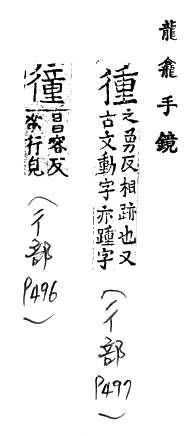 龍龕手鏡
㣫
之勇反相跡也又
古文動字亦踵字
（彳部
P497）
徸
昌容反
行皃
（彳部
P496）